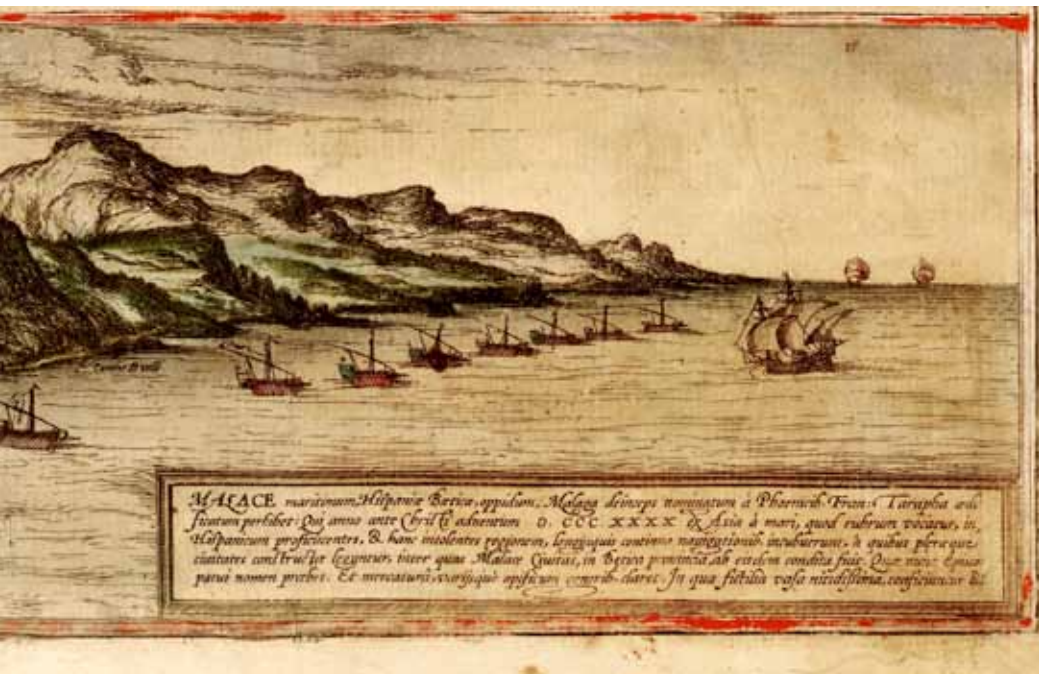 MALACE maritimum, Hispaniæ Bæticæ, oppidum, Malaga deinceps nominatum à Phoenicib. Fran: Tarapha ædi
ficatum perhibet: Qui anno ante Christi aduentum D. CCC XXXX ex Asia à mari, quod rubrum vocatur, in
Hispanicum proficiscentes, & hanc incolentes regionem, longinquis continuo nauigationib. incubuerunt, à quibus pleræque
ciuitates constructæ leguntur, inter quas Malace Ciuitas, in Betica prouincia ab eisdem condita fuit. Quæ nunc Episco
patui nomen præbet. Et mercatura, varijsque opificum generib. claret. In qua fictilia vasa nitidissima, conficiuntur